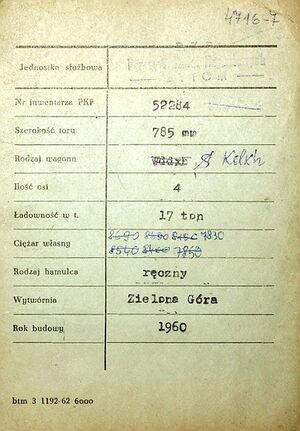 4716-7
Jednostka służbowa
BYTOM
Nr inwentarza PKP 52284
Szerokość toru 785 mm
Rodzaj wagonu Wddxh
Ilość osi 4
Ładowność w t. 17 ton
Ciężar własny 8690 8480 8450 7830
8540 8460 7850
Rodzaj hamulca ręczny
Wytwórnia Zielona Góra
Rok budowy 1960
btm 3 1192-62 6000